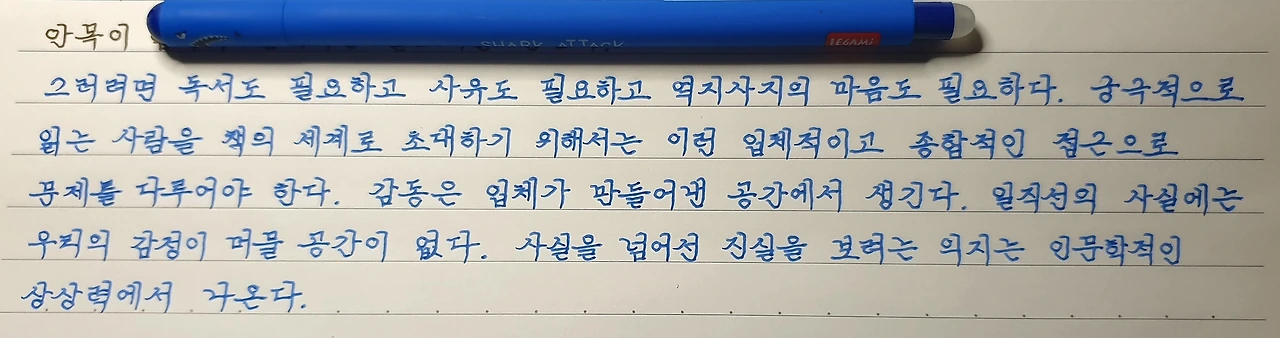 안목이
SHARK ATTACK
LEGAMI
그러려면 독서도 필요하고 사유도 필요하고 역지사지의 마음도 필요하다. 궁극적으로
읽는 사람을 책의 세계로 초대하기 위해서는 이런 입체적이고 종합적인 접근으로
문제를 다루어야 한다. 감동은 입체가 만들어낸 공간에서 생긴다. 일직선의 사실에는
우리의 감정이 머물 공간이 없다. 사실을 넘어선 진실을 보려는 의지는 인문학적인
상상력에서 나온다.